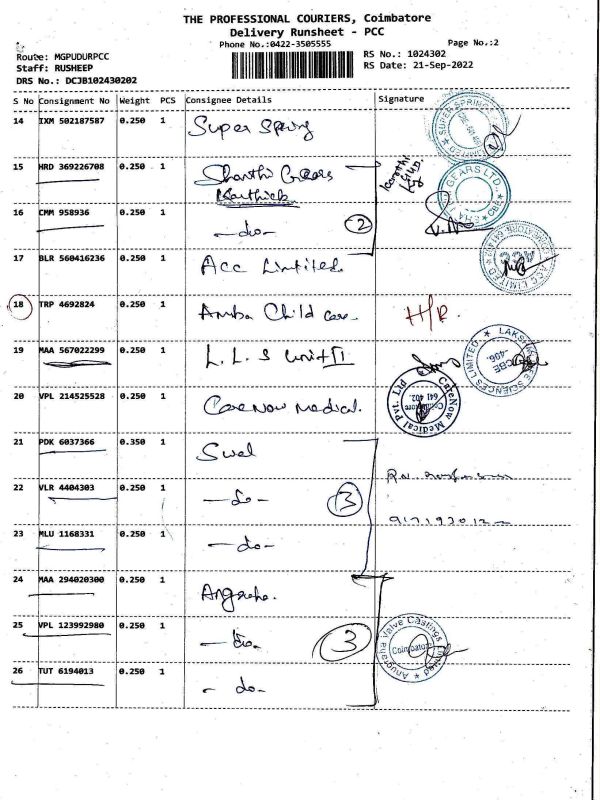 THE PROFESSIONAL COURIERS, Coimbatore
Delivery Runsheet - PCC
Phone No.:0422-3505555
Page No.:2
Route: MGPUDURPCC
RS No.: 1024302
Staff: RUSHEEP
RS Date: 21-Sep-2022
DRS No.: DCJB102430202
S No Consignment No Weight PCS Consignee Details Signature
14 IXM 502187587 0.250 1 Super Spring
15 HRD 369226708 0.250 1 Shanthi Gears
Karthick
16 CMM 958936 0.250 1 -do- 2
17 BLR 560416236 0.250 1 Acc Limited
18 TRP 4692824 0.250 1 Amba Child care H/R.
19 MAA 567022299 0.250 1 L.L.S Unit II
20 VPL 214525528 0.250 1 CareNow Medical.
CareNow Medical Pvt. Ltd
Coimbatore
641 402.
21 PDK 6037366 0.350 1 Swel
22 VLR 4404303 0.250 1 -do- 3
23 MLU 1168331 0.250 1 -do-
24 MAA 294020300 0.250 1
25 VPL 123992980 0.250 1 -do- 3
Anugraha Valve Castings Limited
Coimbatore
26 TUT 6194013 0.250 1 -do-